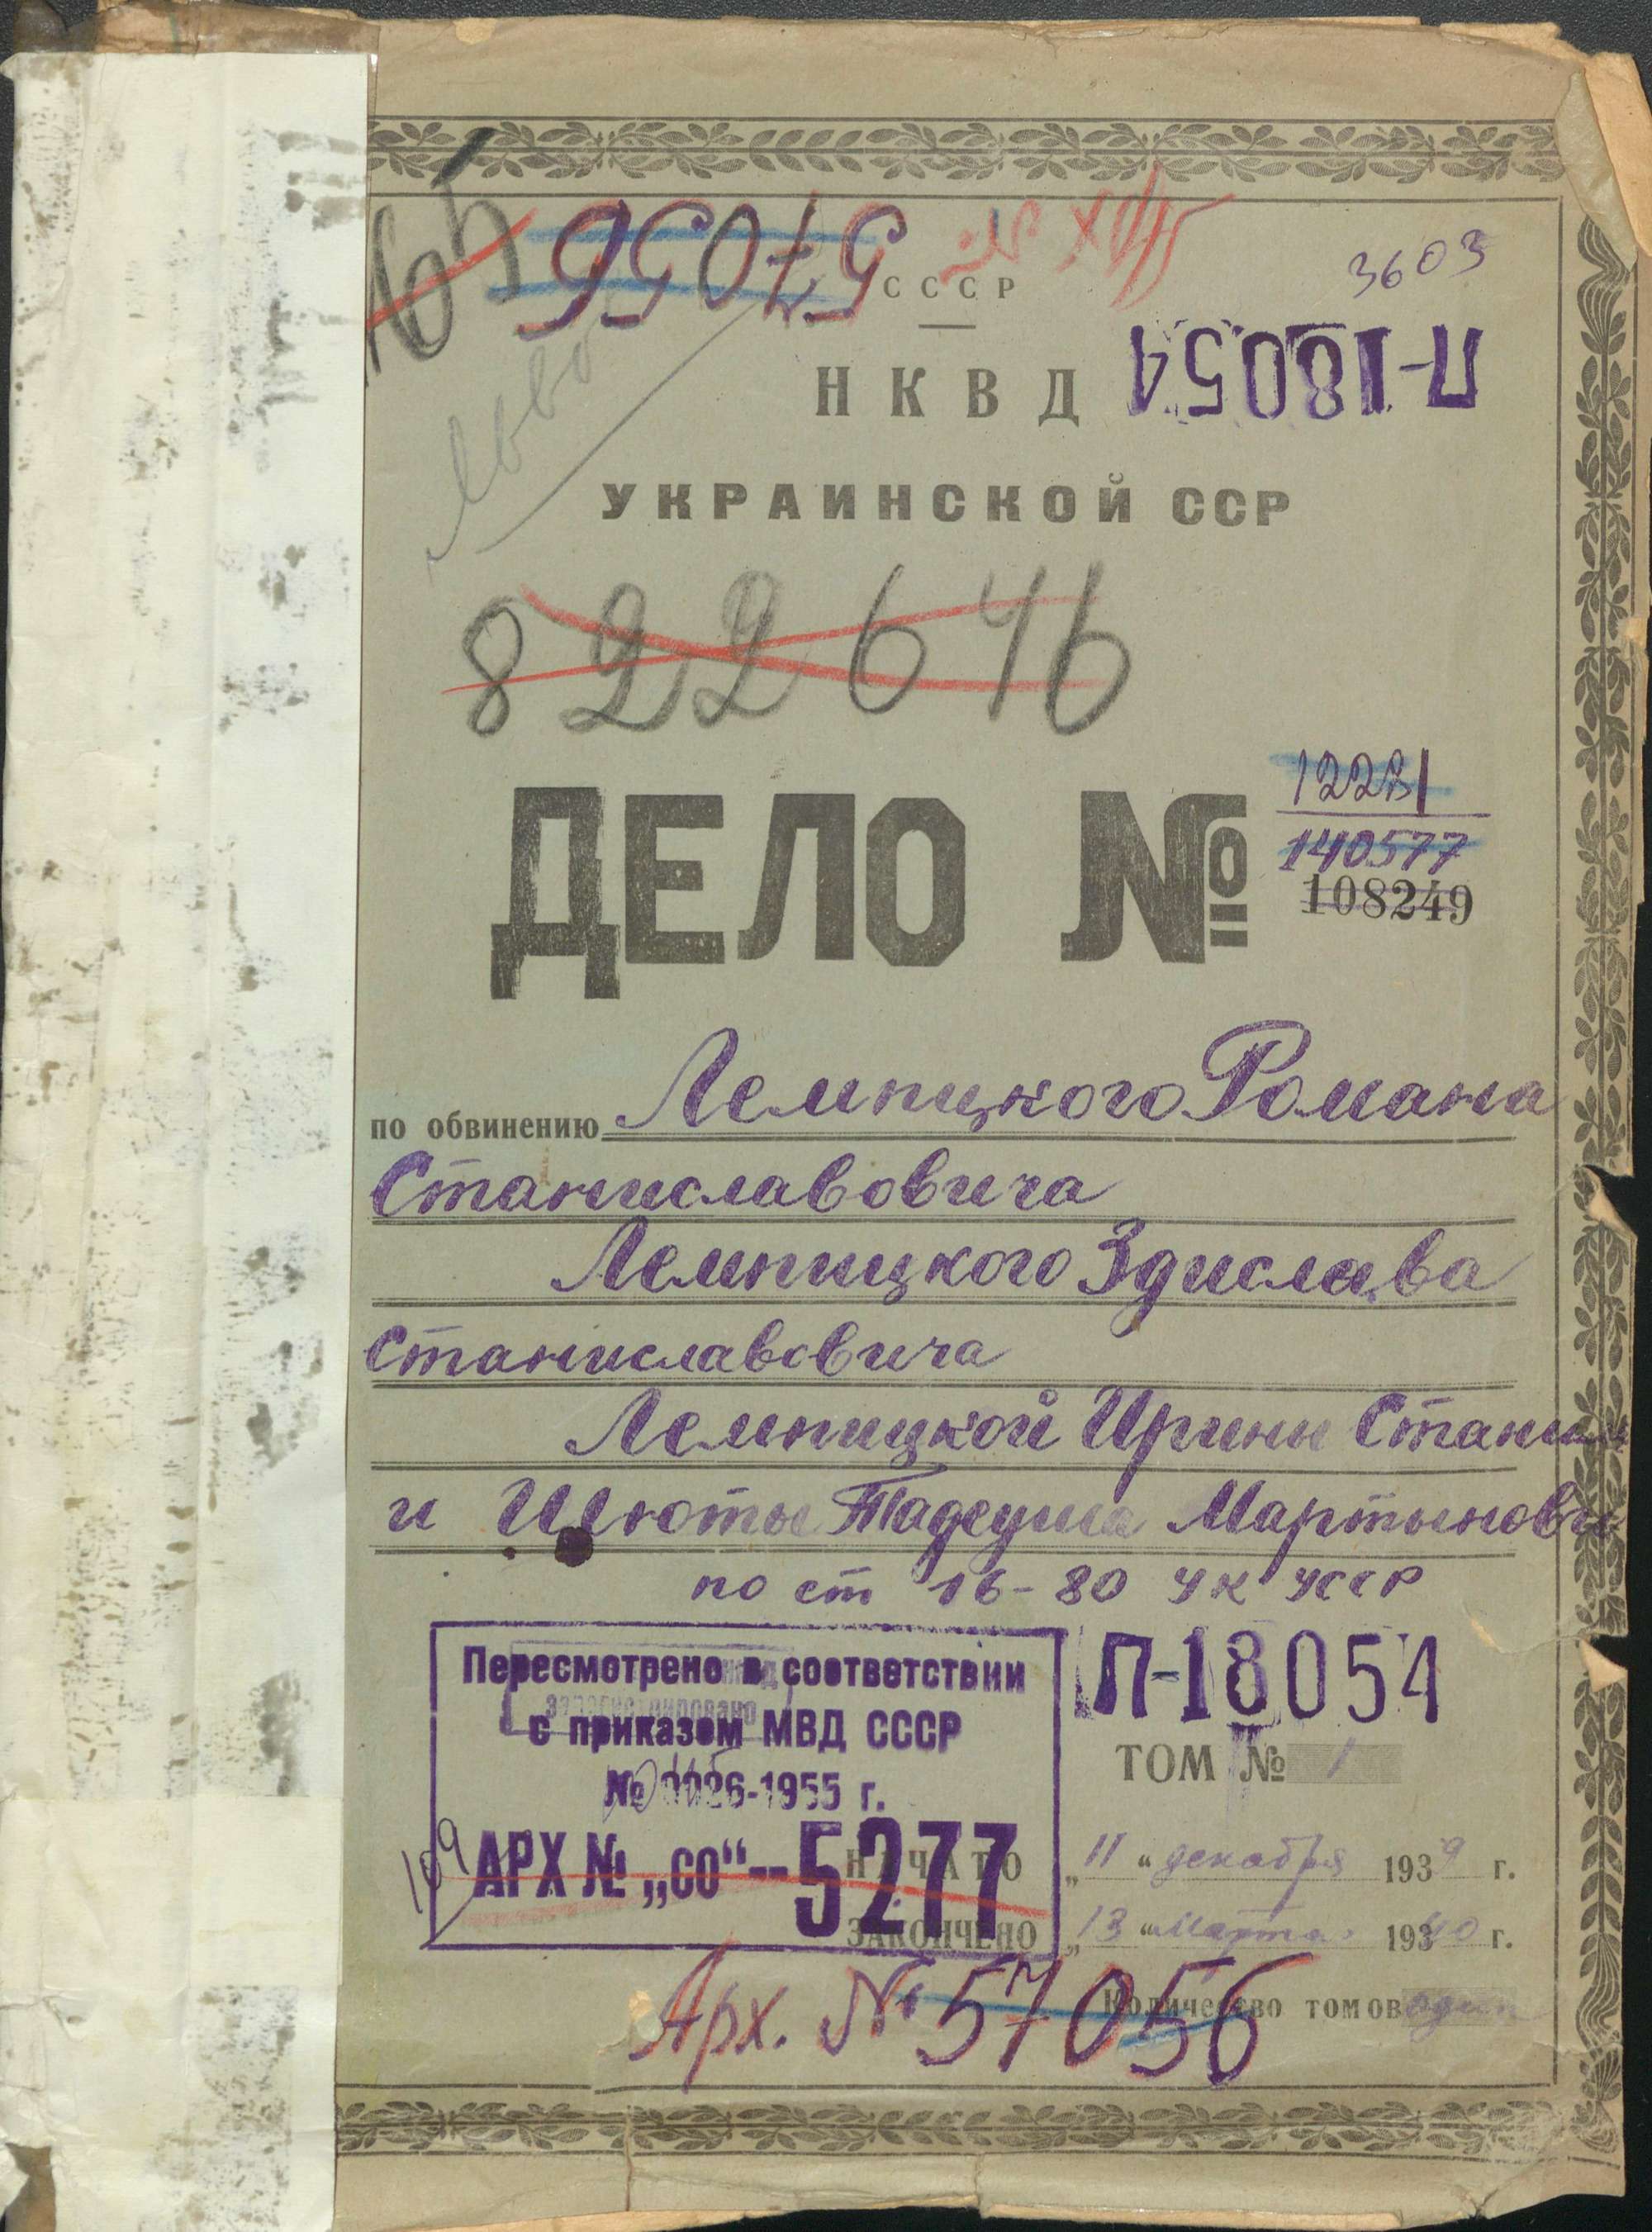 57056
СССР
3603
НКВД
П-18054
Львов
УКРАИНСКОЙ ССР
822646
ДЕЛО №
140577
108249
по обвинению Лемпицкого Романа
Станиславовича
Лемпицкого Здислава
Станиславовича
Лемпицкой Ирины Стани
и Шлюты Тадеуша Мартынови
по ст 16-80 УК УССР
Пересмотрено в соответствии
с приказом МВД СССР
-1955 г.
АРХ № „СО“--5277
109
П-18054
ТОМ № 1
НАЧАТО „11“ декабря 1939 г.
ЗАКОНЧЕНО „13“ марта 1940 г.
Количество томов один
Арх. № 57056